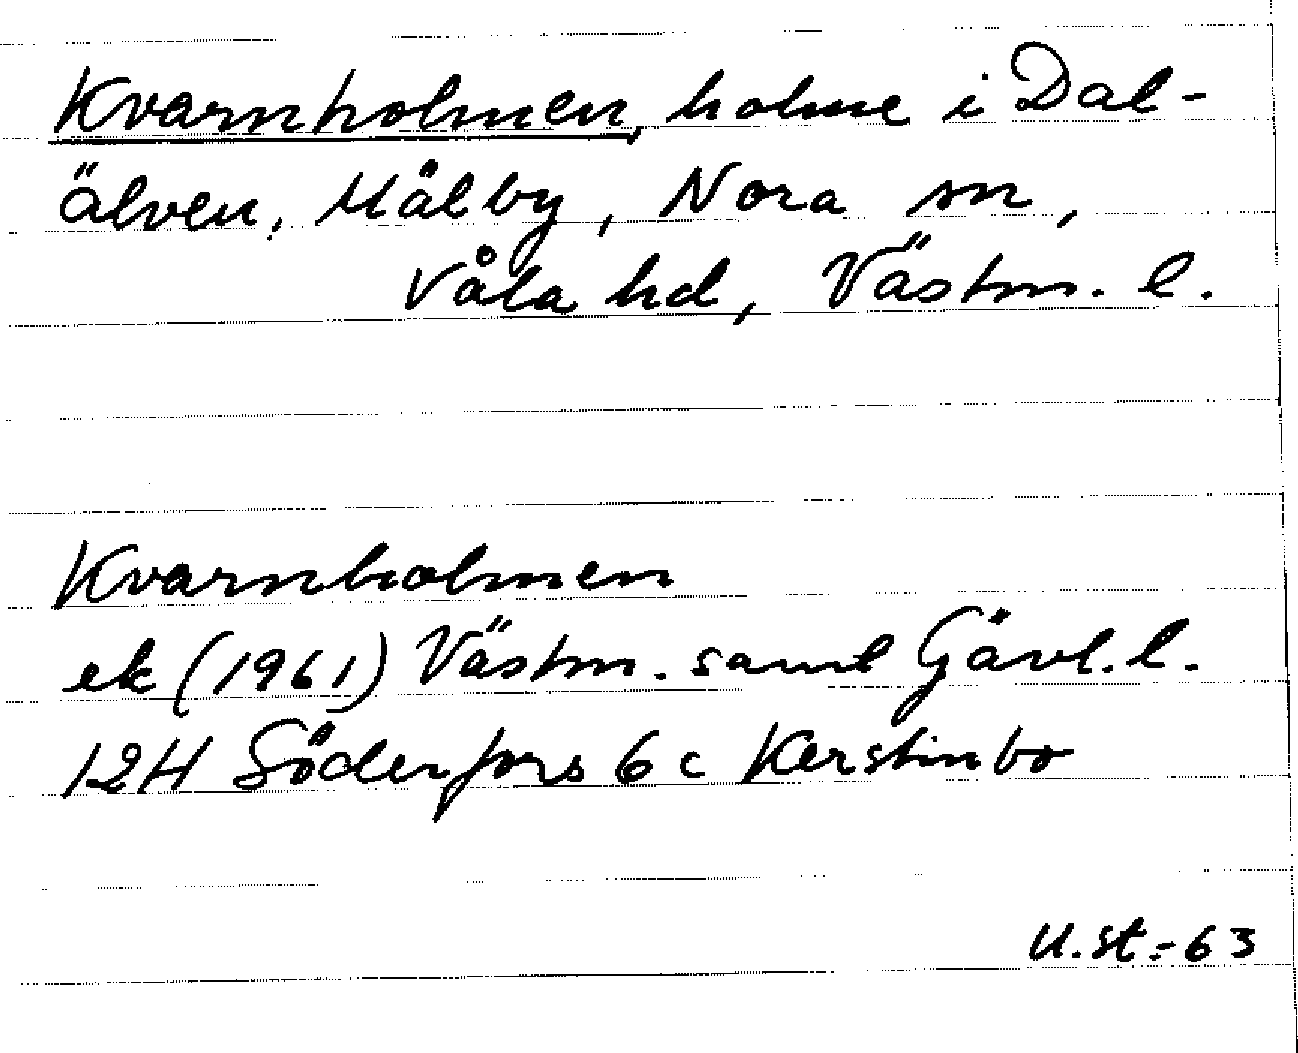 Kvarnholmen, holme i Dal-
älven, Mälby, Nora sn,
Våla hd, Västm. l.
Kvarnholmen
ek (1961) Västm. samt Gävl. l.
12H Söderfors 6c Kerstinbo
U.St.-63